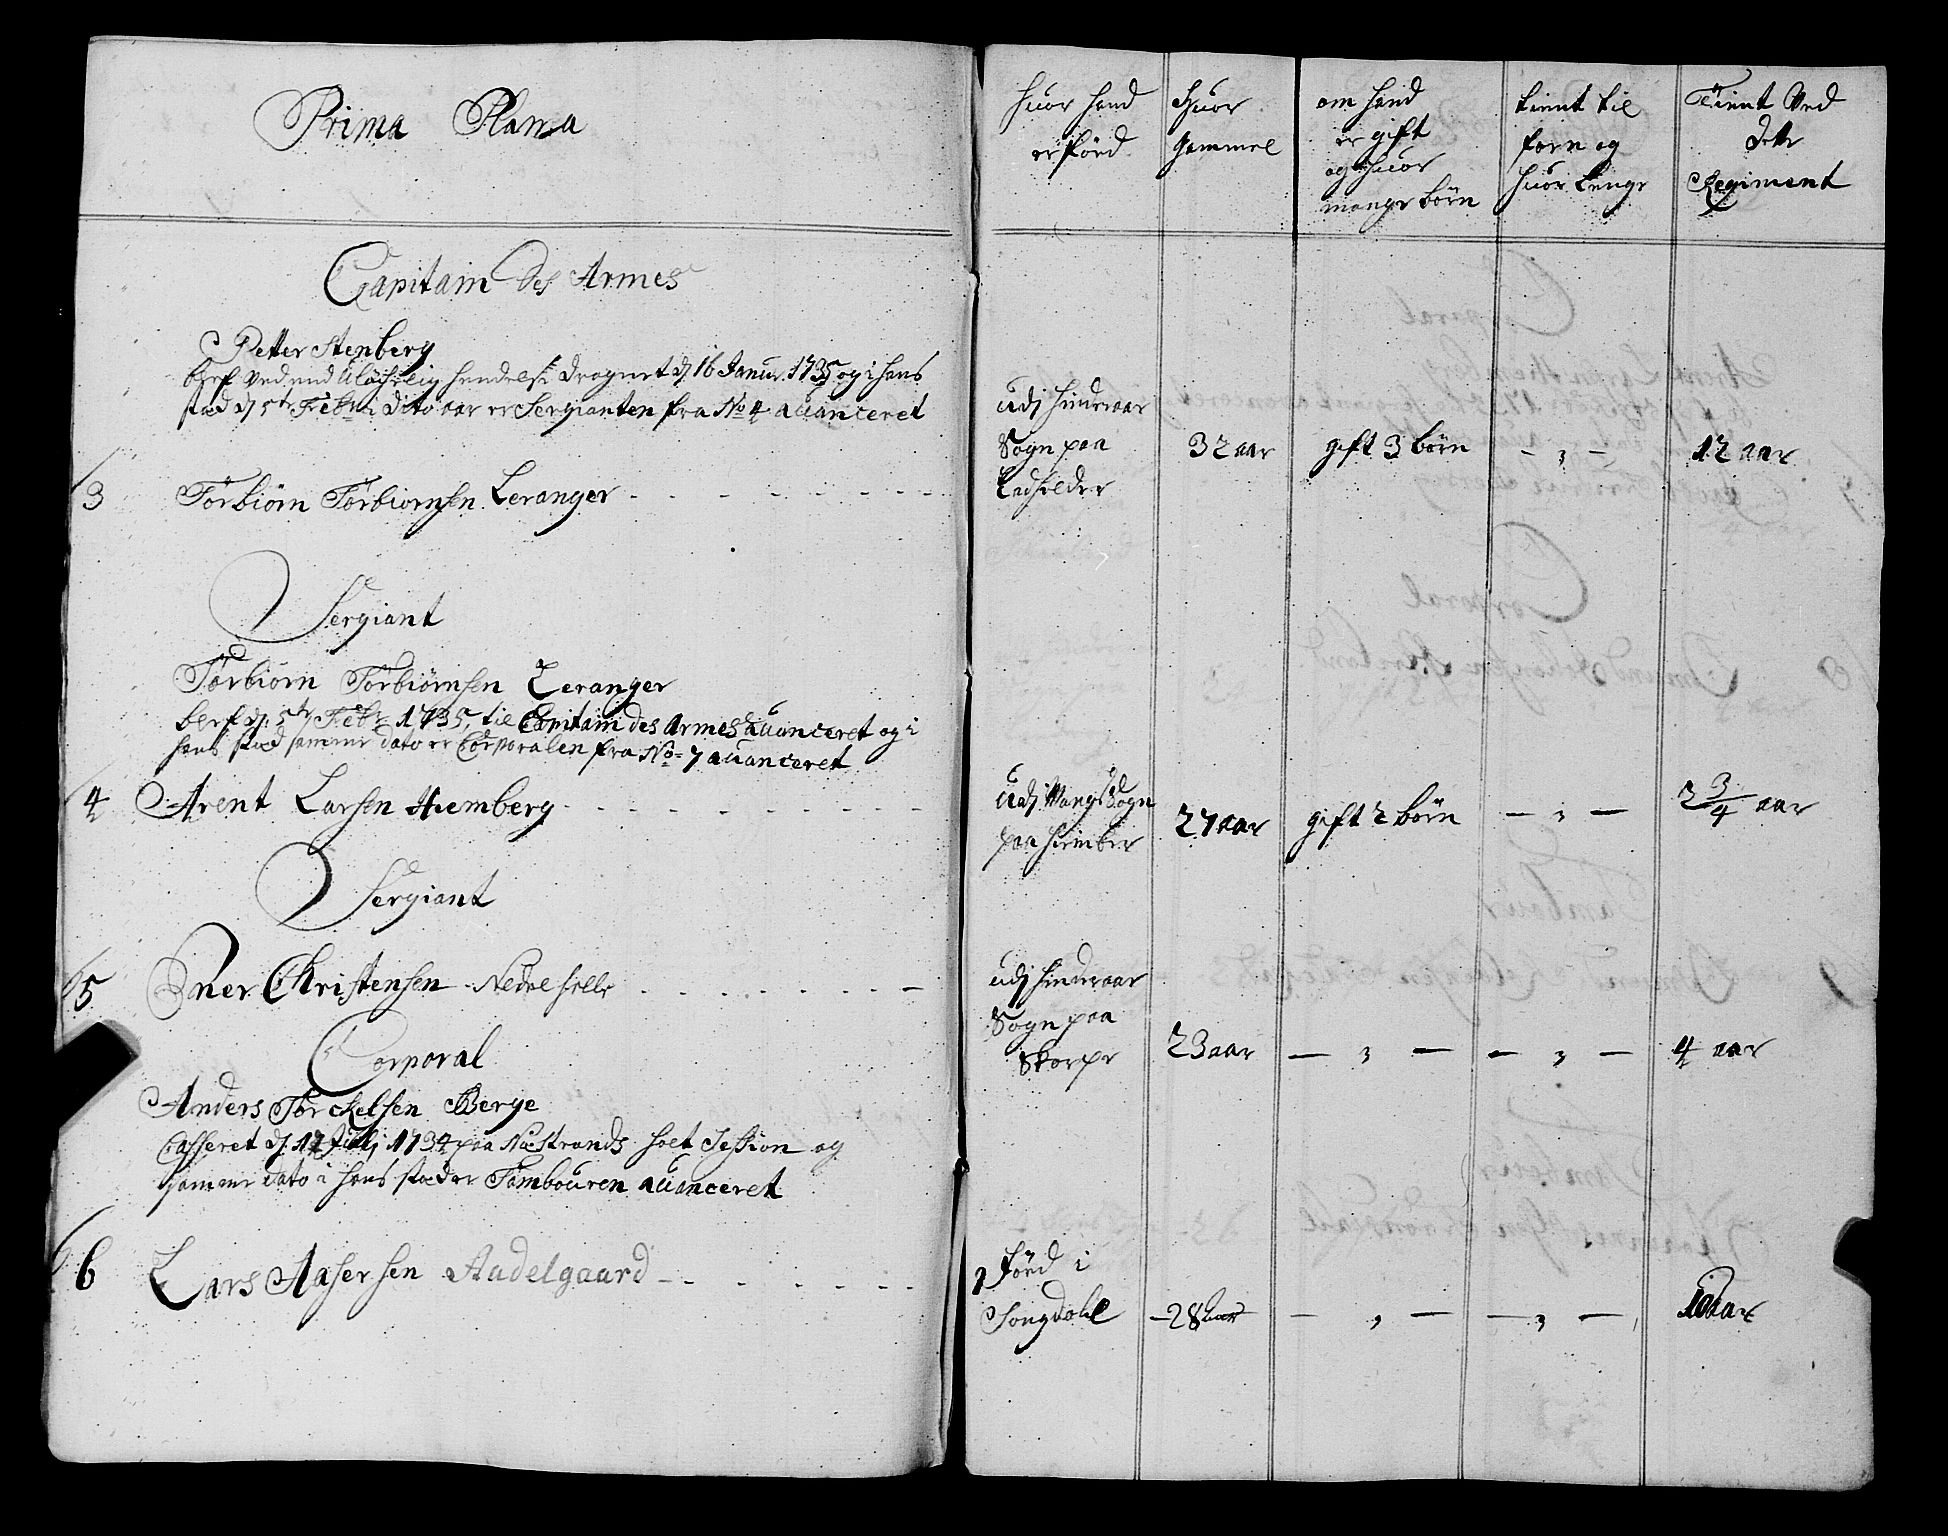 Prima Plana
Capitain des Armes
Petter Stenberg
blef ved end Ulöchelig hendelse Drognet d 16 Janur. 1735 og i hans
sted d 5te Febr: dito aar er Sergianten fra No 4 auanceret
3 Törbiörn Törbiörnsen Leranger
Sergiant
Törbiörn Törbiörnsen Leranger
blef d. 5te Febr 1735 til Capitain des Armes auanceret og i
hans sted samme dato er Corporalen fra No 7 auanceret
4 Arent Larsen Hiemberg
Sergiant
5 Iver Christensen Nedrehelle
Corporal
Anders Törckelsen Berge
Casseret d. 12 Julj 1734 paa Nestrands holt Session og
samme dato i hans sted er Tambouren auanceret
6 Lars Aasersen Aadelgaard
huor hand
er föed
Huor
Gammel
om hand
er gift
og huor
mange börn
tient til
forn og
huor lenge
Tient Ved
dette
Regiment
udj Hinderaar
Sogn paa
Ladhelder
32 aar
gift 3 börn
- " -
12 aar
udj Wangs Sogn
paa Hiember
27 aar
gift 2 börn
- " -
2 3/4 aar
udj Hinderaar
Sogn paa
Skorpe
23 aar
- " -
- " -
4 aar
Föed i
Songdahl
28 aar
- " -
- " -
10 aar